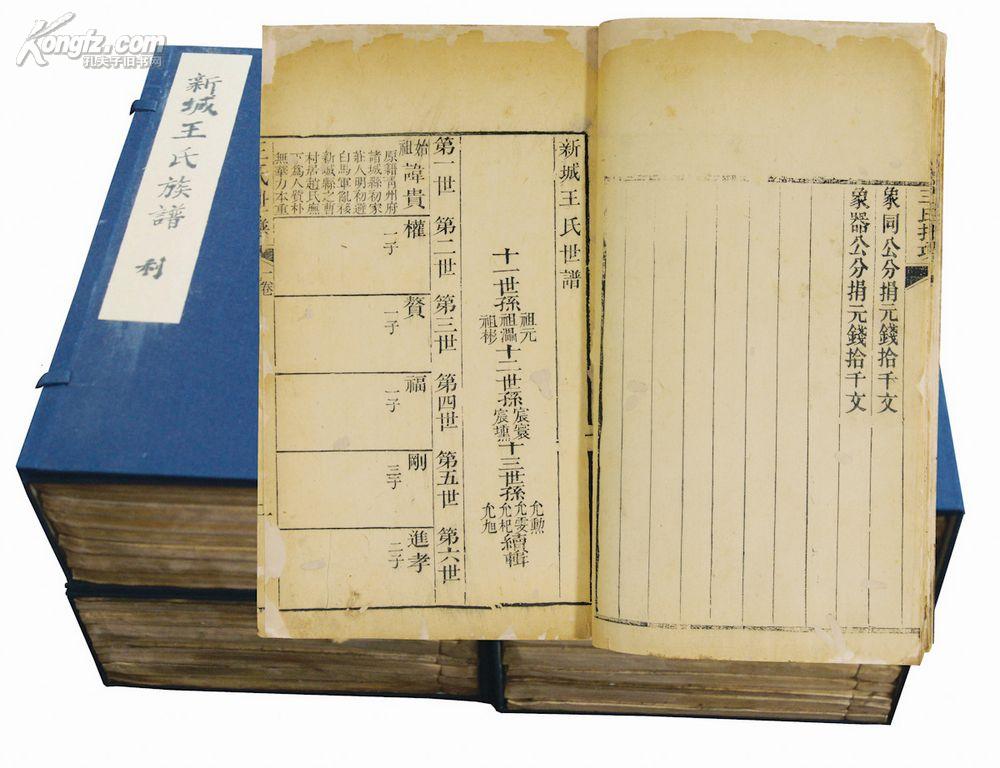 Kongfz.com
孔夫子旧书网
新城王氏族譜
利
象同公分捐元錢拾千文
象器公分捐元錢拾千文
新城王氏世譜
十一世孫
祖元
祖彬
十二世孫
十三世孫
允勲
允雯
允杞
允旭
續輯
第一世
第二世
第三世
第四世
第五世
第六世
始祖
諱貴
原籍青州府
諸城縣初家
莊人明初避
白馬軍亂移
新城縣之曹
村居趙氏廡
下爲人質朴
無華力本重
權
一子
贅
一子
福
一子
剛
三子
進孝
二子
卷